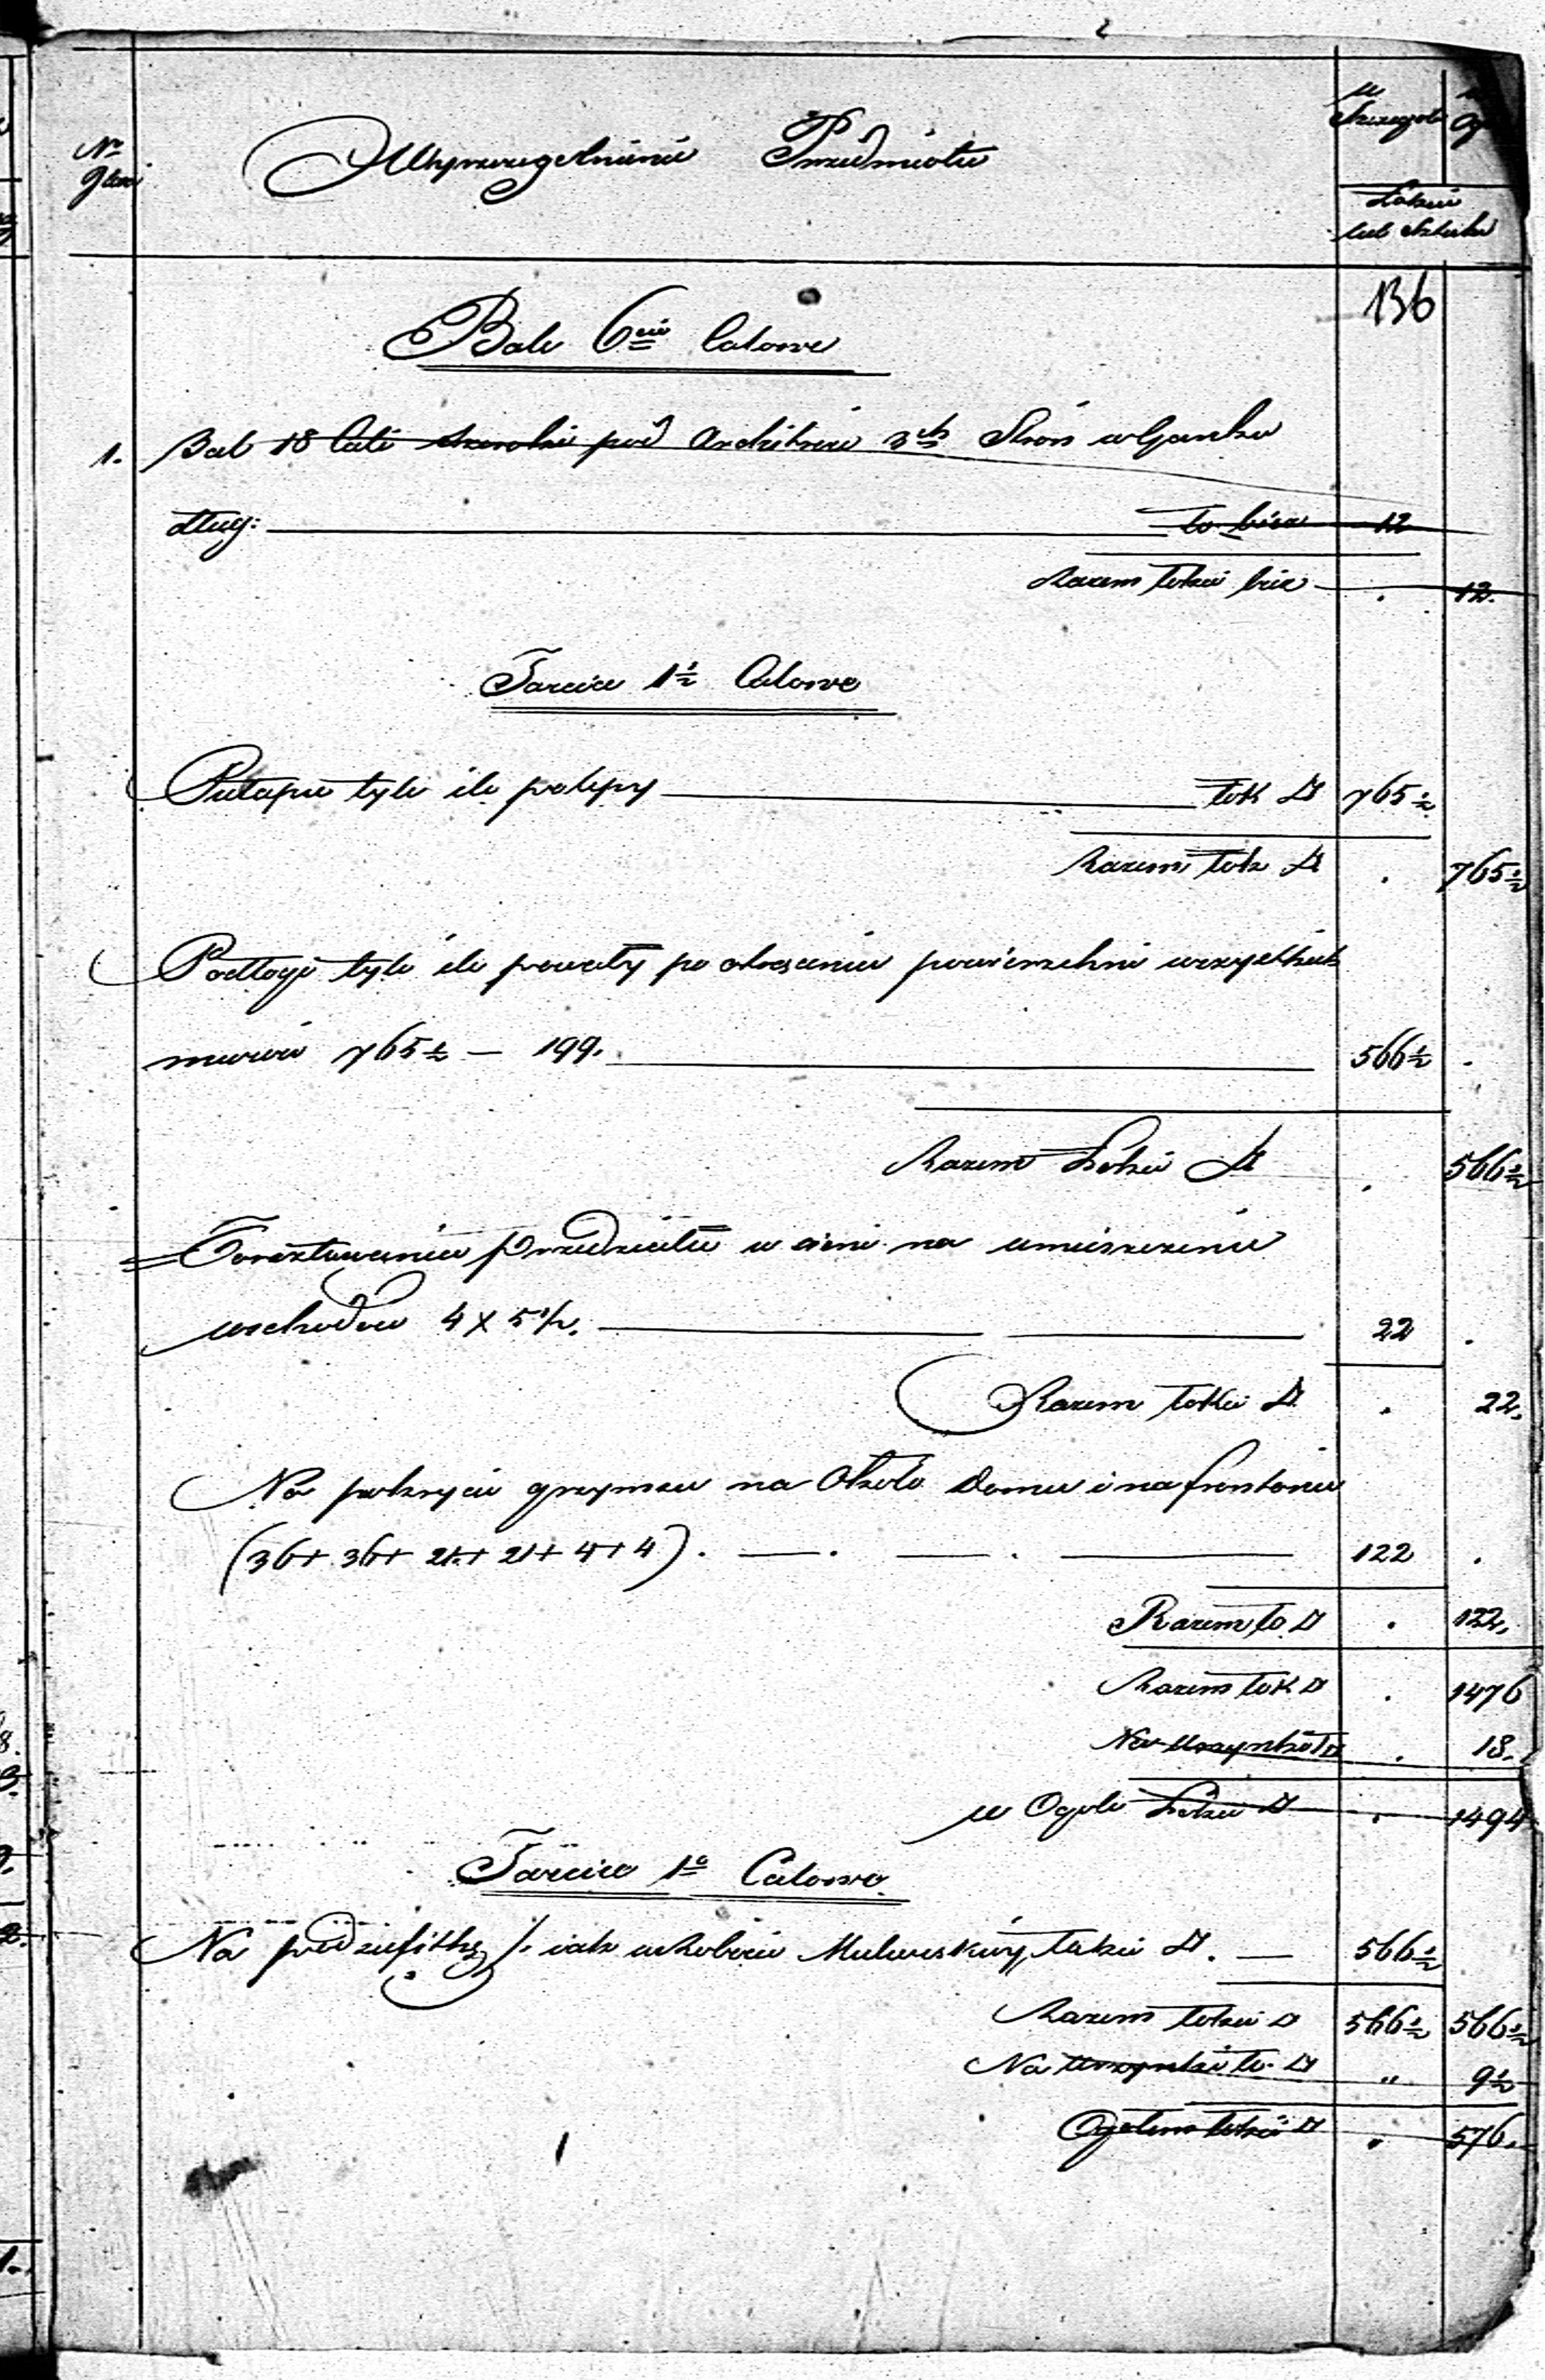 Nr
Wyszczególnienie Przedmiotu
w Szczegól
Łokcie
lub Sztuki
136
Bale 6cio Calowe
1. Bal 18 Cali szeroki pod Architraw 3ch Stron w Ganku
dług: ło. bież 12
Razem łokci bież . 12.
Tarcice 1½ Calowe
Pułapu tyle ile polepy łok □ 765½
Razem łok □ . 765½
Podłogi tyle ile powały po strąceniu powierzchni wszystkich
murów 765½ — 199. 566½ .
Razem Łokci □ . 566½
Forsztowania przedziału w sieni na umieszczenie
wschodów 4 X 5 1/2. 22 .
Razem łokci □ . 22.
Na pokrycie gzymsu na Około Domu i na frontonie
(36 + 36 + 21 + 21 + 4 + 4). — . — . — 122 .
Razem ło □ . 122.
Razem łok □ . 1476
Na Urzynki ło □ . 18.
w Ogóle Łokci □ . 1494
Tarcice 1o Calowe
Na podsufitkę /. iak w Robocie Mularskiej, łokci □. — 566½
Razem łokci □ 566½ 566½
Na Urzynki ło. □ " 9½
Ogółem łokci □ . 576.